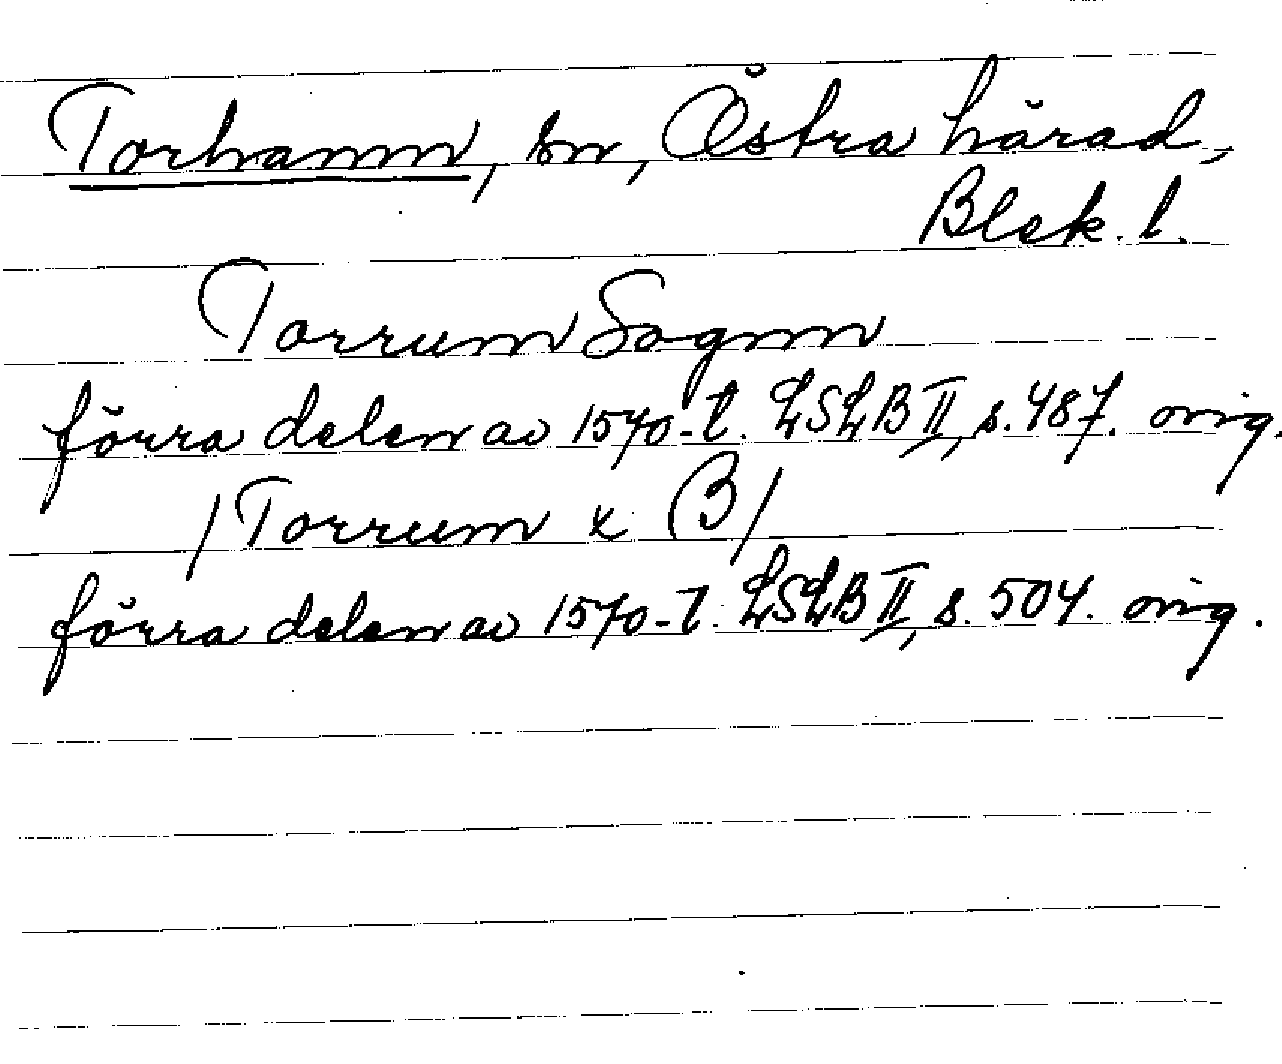 Torhamn, sn, Östra härad,
Blek. l.
Torrum Sognn
förra delen av 1570-t. LSLB II, s. 487. orig.
/Torrum x (B)/
förra delen av 1570-t. LSLB II, s. 504. orig.